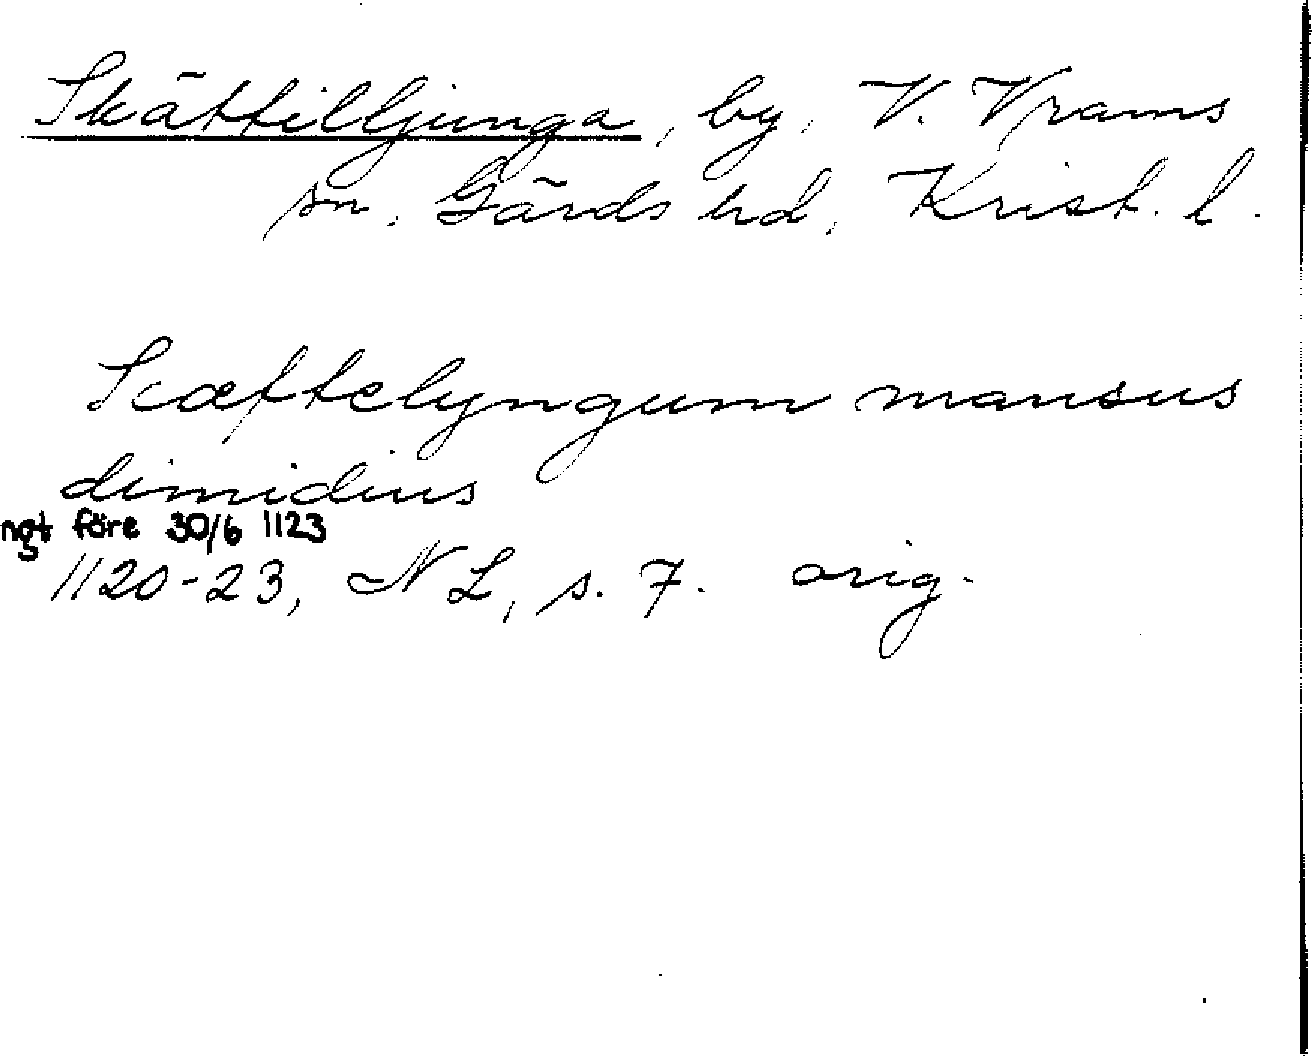 Skättilljunga, by, V. Vrams
sn. Gärds hd, Krist. l.
Scæftelyngum mansus
dimidius
ngt före 30/6 1123
1120-23, NL, s. 7. orig.